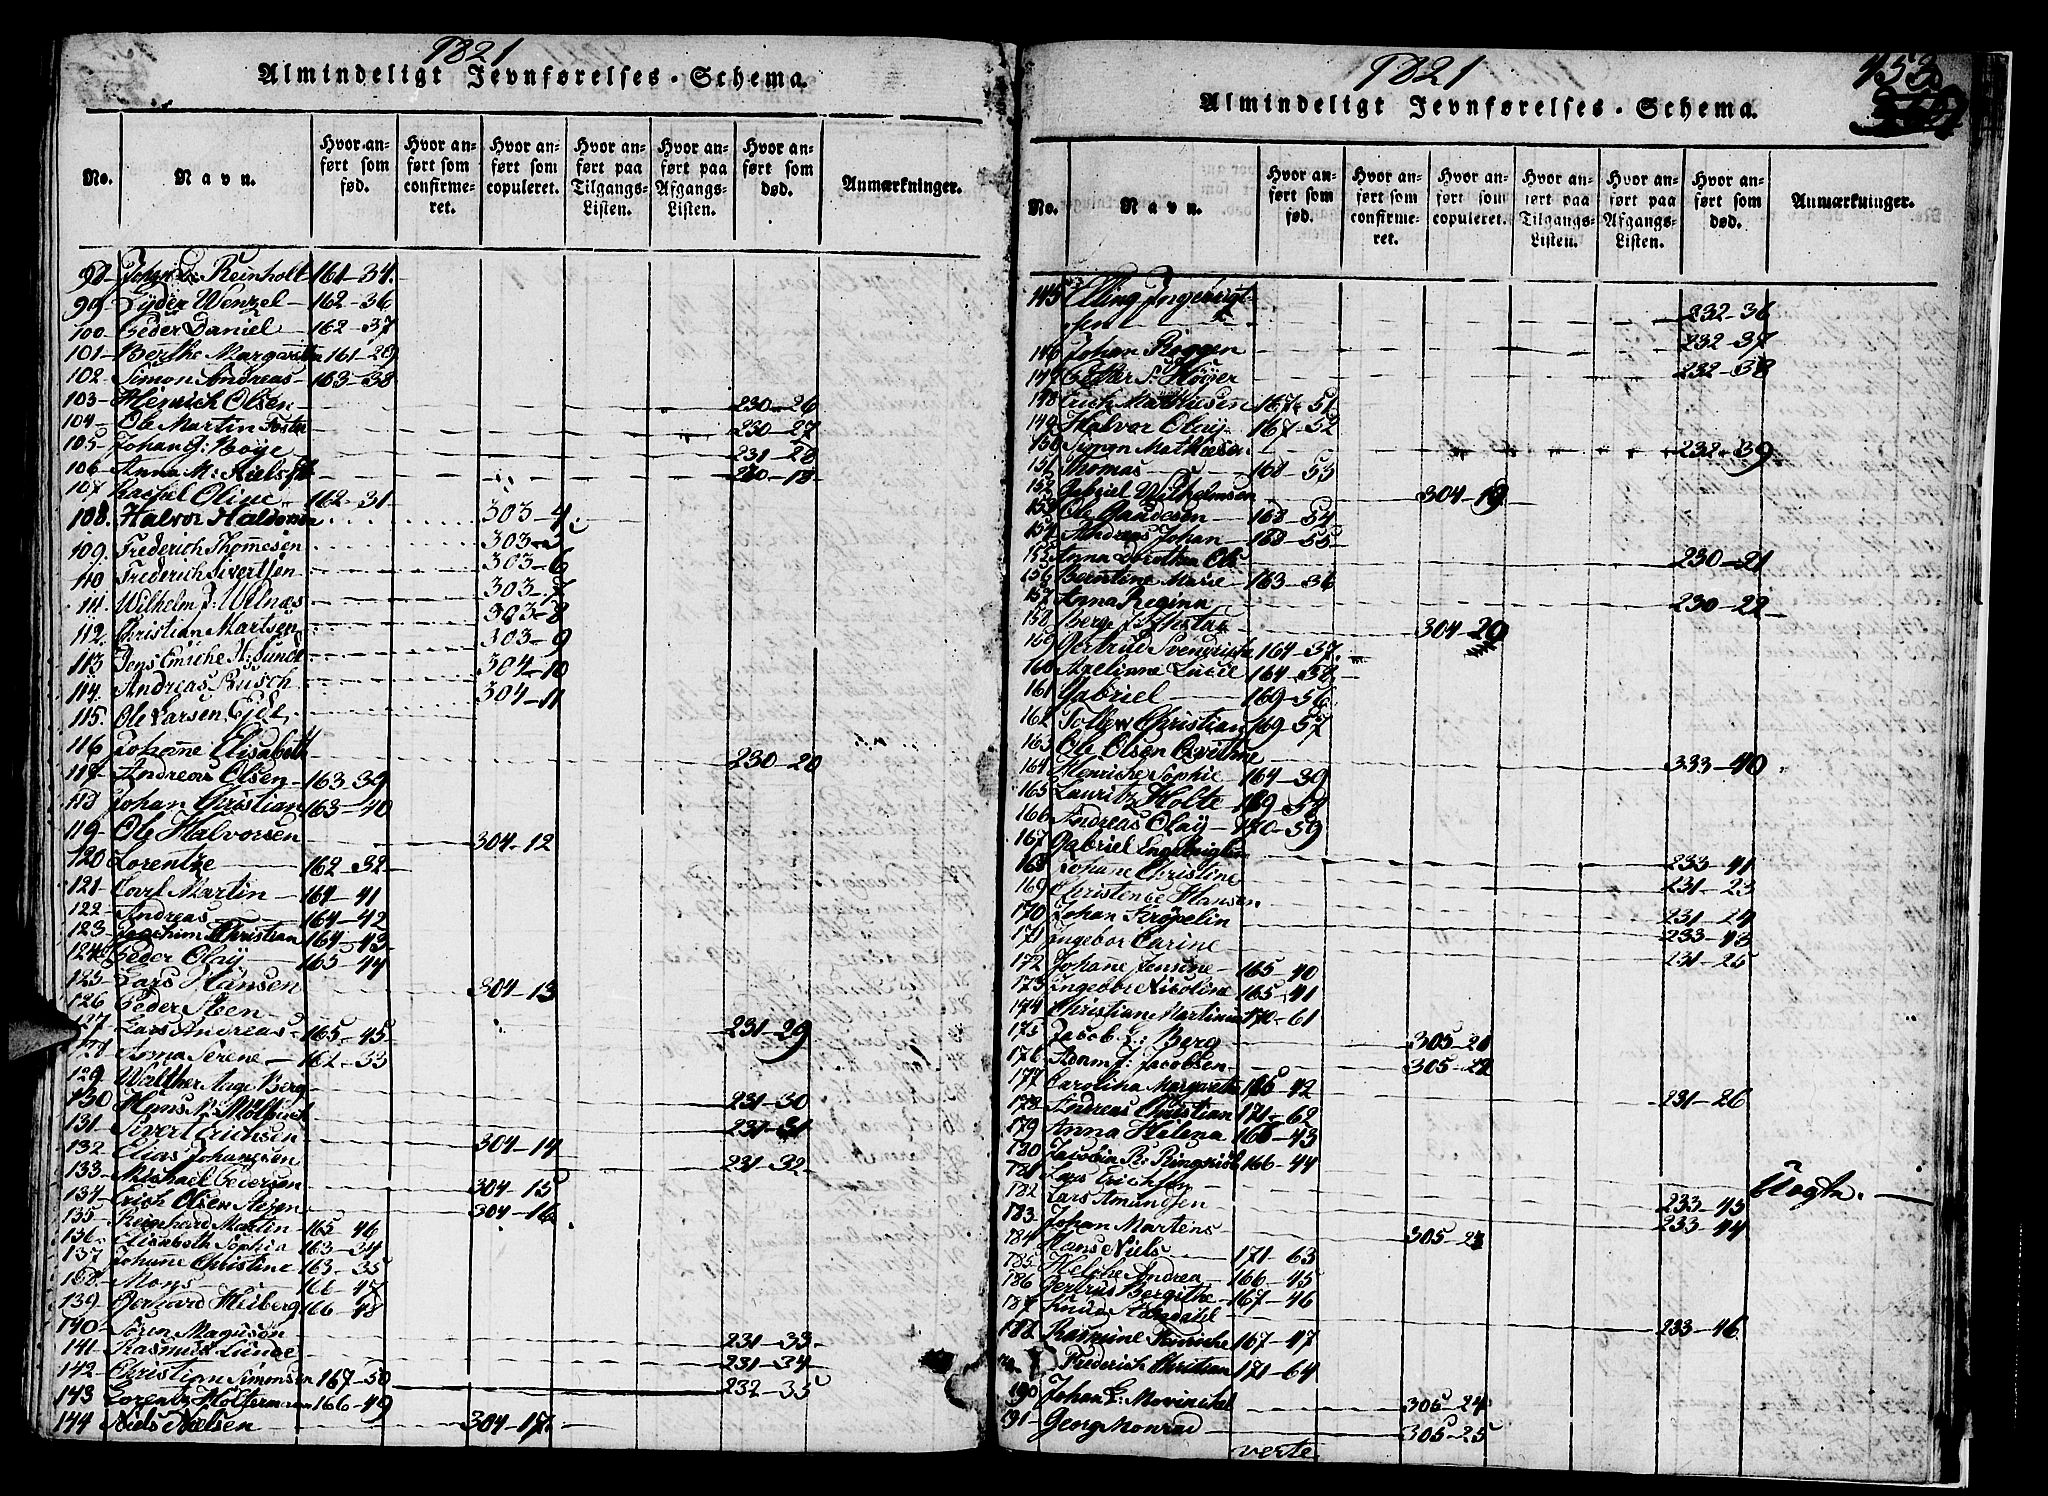 1821
Almindeligt Jevnførelses-Schema.
No. Navn. Hvor anført som fød. Hvor anført som confirmeret. Hvor anført som copuleret. Hvor anført paa Tilgangs-Listen. Hvor anført paa Afgangs-Listen. Hvor anført som død. Anmærkninger.
98 Reinholt 161-34.
99 Lyder Wenzel 162-36
100 Peder Daniel 162-37
101 Berthe Margaretha 161-29
102 Simon Andreas 163-38
103 Henrich Olsen 230-26
104 Ole Martin 230-27
105 Johan G: Boye 231-28
106 Anna M: Nielsdt 230-18
107 Rachel Oline 162-31
108 Halvor Halvorsen 303-4
109 Frederich Thomesen 303-5
110 Frederich Sivertsen 303-6
111 Wilhelm J: Welnæs 303-7
112 Christian Martsen 303-8
113 Jens Emiche H: Sundt 303-9
114 Andreas Busch 304-10
115 Ole Larsen Eide 304-11
116 Johanne Elisabeth 230-20
117 Andreas Olsen 163-39
118 Johan Christian 163-40
119 Ole Halvorsen 304-12
120 Lorentze 162-32
121 Carl Martin 164-41
122 Andreas 164-42
123 Joachim Christian 164-43
124 Peder Olay 165-44
125 Lars Hansen 304-13
126 Peder Steen 231-29
127 Lars Andreas 165-45
128 Anna Serene 162-33
129 Walther Aage Berg 231-30
130 Hans N: Moltzau 231-31
131 Sivert Erichsen 304-14
132 Elias Johannesen 231-32
133 Michael Pedersen 304-15
134 Erich Olsen Steen 304-16
135 Reinhard Martin 165-46
136 Elisabeth Sophia 163-34
137 Johanne Christine 163-35
138 Mons 166-47
139 Gerhard Heiberg 166-48
140 Sören Magnson 231-33
141 Rasmus Lunde 231-34
142 Christian Simonsen 167-50
143 Lorentz Holtermann 166-49 232-35
144 Niels Nielsen 304-17
1821
453
Almindeligt Jevnførelses-Schema.
No. Navn. Hvor anført som fød. Hvor anført som confirmeret. Hvor anført som copuleret. Hvor anført paa Tilgangs-Listen. Hvor anført paa Afgangs-Listen. Hvor anført som død. Anmærkninger.
145 Elling Ingebrigt-
sen 232-36
146 Johan Roggen 232-37
147 Petter S: Höyer 232-38
148 Erich Mathiesen 167-51
149 Halvor Olay 167-52
150 Simon Mathiesen 232-39
151 Thomas 168-53
152 Gabriel Wilhelmsen 304-19
153 Ole Gaudesen 168-54
154 Andreas Johan 168-55
155 Anna Dorothea Ols 230-21
156 Berntine Marie 163-36
157 Anna Regina 230-22
158 Berge 304-20
159 Gertrud 164-37
160 Axeliane Lucie 164-38
161 Gabriel 169-56
162 Christian 169-57
163 Ole Olsen 333-40
164 Henriche Sophie 164-39
165 Lauritz Holte 169-58
166 Andreas Olay 170-59
167 Gabriel 233-41
168 Johane Christine 231-23
169 Christence Hansen 231-24
170 Johan Kröpelin 233-43
171 Ingebor Carine 231-25
172 Johane Jensine 165-40
173 Ingebor Nicoline 165-41
174 Christian Martinius 170-61
175 Jacob L: Berg 305-21
176 Adam J: Jacobsen 305-22
177 Carolina Margaretha 165-42 231-26
178 Andreas Christian 171-62
179 Anna Helena 166-43
180 Jacobin R: 166-44
181 Lars Erichsen
182 Lars Amundsen 233-43
183 Johan Martens 233-44
184 Hans Niels 171-63 305-23
185 Helche Andrea 166-45
186 Gertrud Bergithe 167-46
187 Knud 233-46
188 Rasmine Henriche 167-47
Frederich Christian 171-64
190 Johan G: Mowinckel 305-24
191 Georg Monrad 305-25
verte